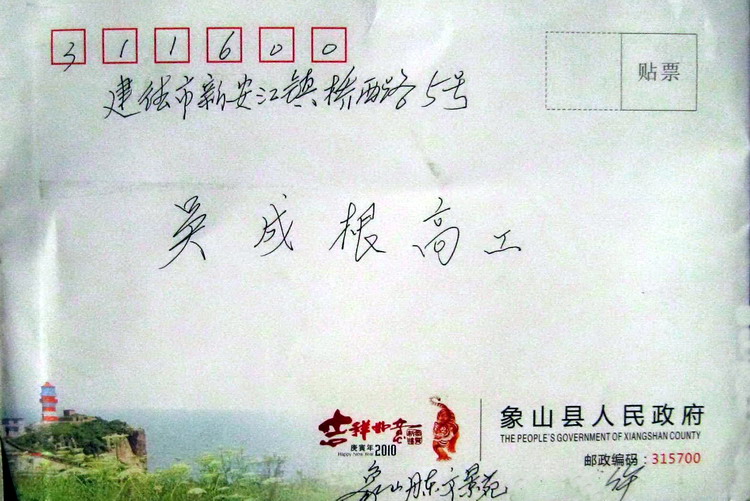 311600
贴票
建德市新安江镇桥西路5号
吴成根高工
吉祥如意
庚寅年
Happy New Year 2010
象山县人民政府
THE PEOPLE'S GOVERNMENT OF XIANGSHAN COUNTY
邮政编码：315700
象山 景苑